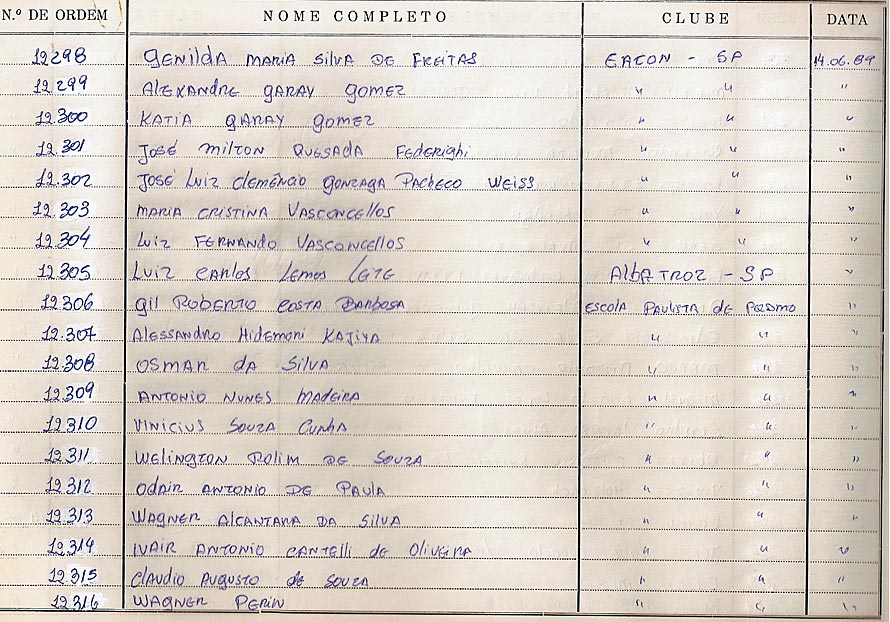 N.º DE ORDEM NOME COMPLETO CLUBE DATA
12298 GENILDA MARIA SILVA DE FREITAS EATON - SP 14.06.89
12299 ALEXANDRE GARAY GOMEZ " " "
12300 KATIA GARAY GOMEZ " " "
12.301 JOSÉ MILTON QUESADA FEDERIGHI " " "
12.302 JOSÉ LUIZ CLEMÊNCIO GONZAGA PACHECO WEISS " " "
12.303 MARIA CRISTINA VASCONCELLOS " " "
12.304 LUIZ FERNANDO VASCONCELLOS " " "
12305 LUIZ CARLOS LEMOS LEITE ALBATROZ - SP "
12306 GIL ROBERTO COSTA BARBOSA ESCOLA PAULISTA DE "
12.307 ALESSANDRO HIDEMONI KAJIYA " " "
12308 OSMAR DA SILVA " " "
12309 ANTONIO NUNES MADEIRA " " "
12310 VINICIUS SOUZA CUNHA " " "
12311 WELINGTON ROLIM DE SOUZA " " "
12312 ODAIR ANTONIO DE PAULA " " "
12313 WAGNER ALCANTARA DA SILVA " " "
12314 IVAIR ANTONIO CANTELLI DE OLIVEIRA " " "
12.315 CLAUDIO AUGUSTO DE SOUZA " " "
12316 WAGNER PERIN " " "